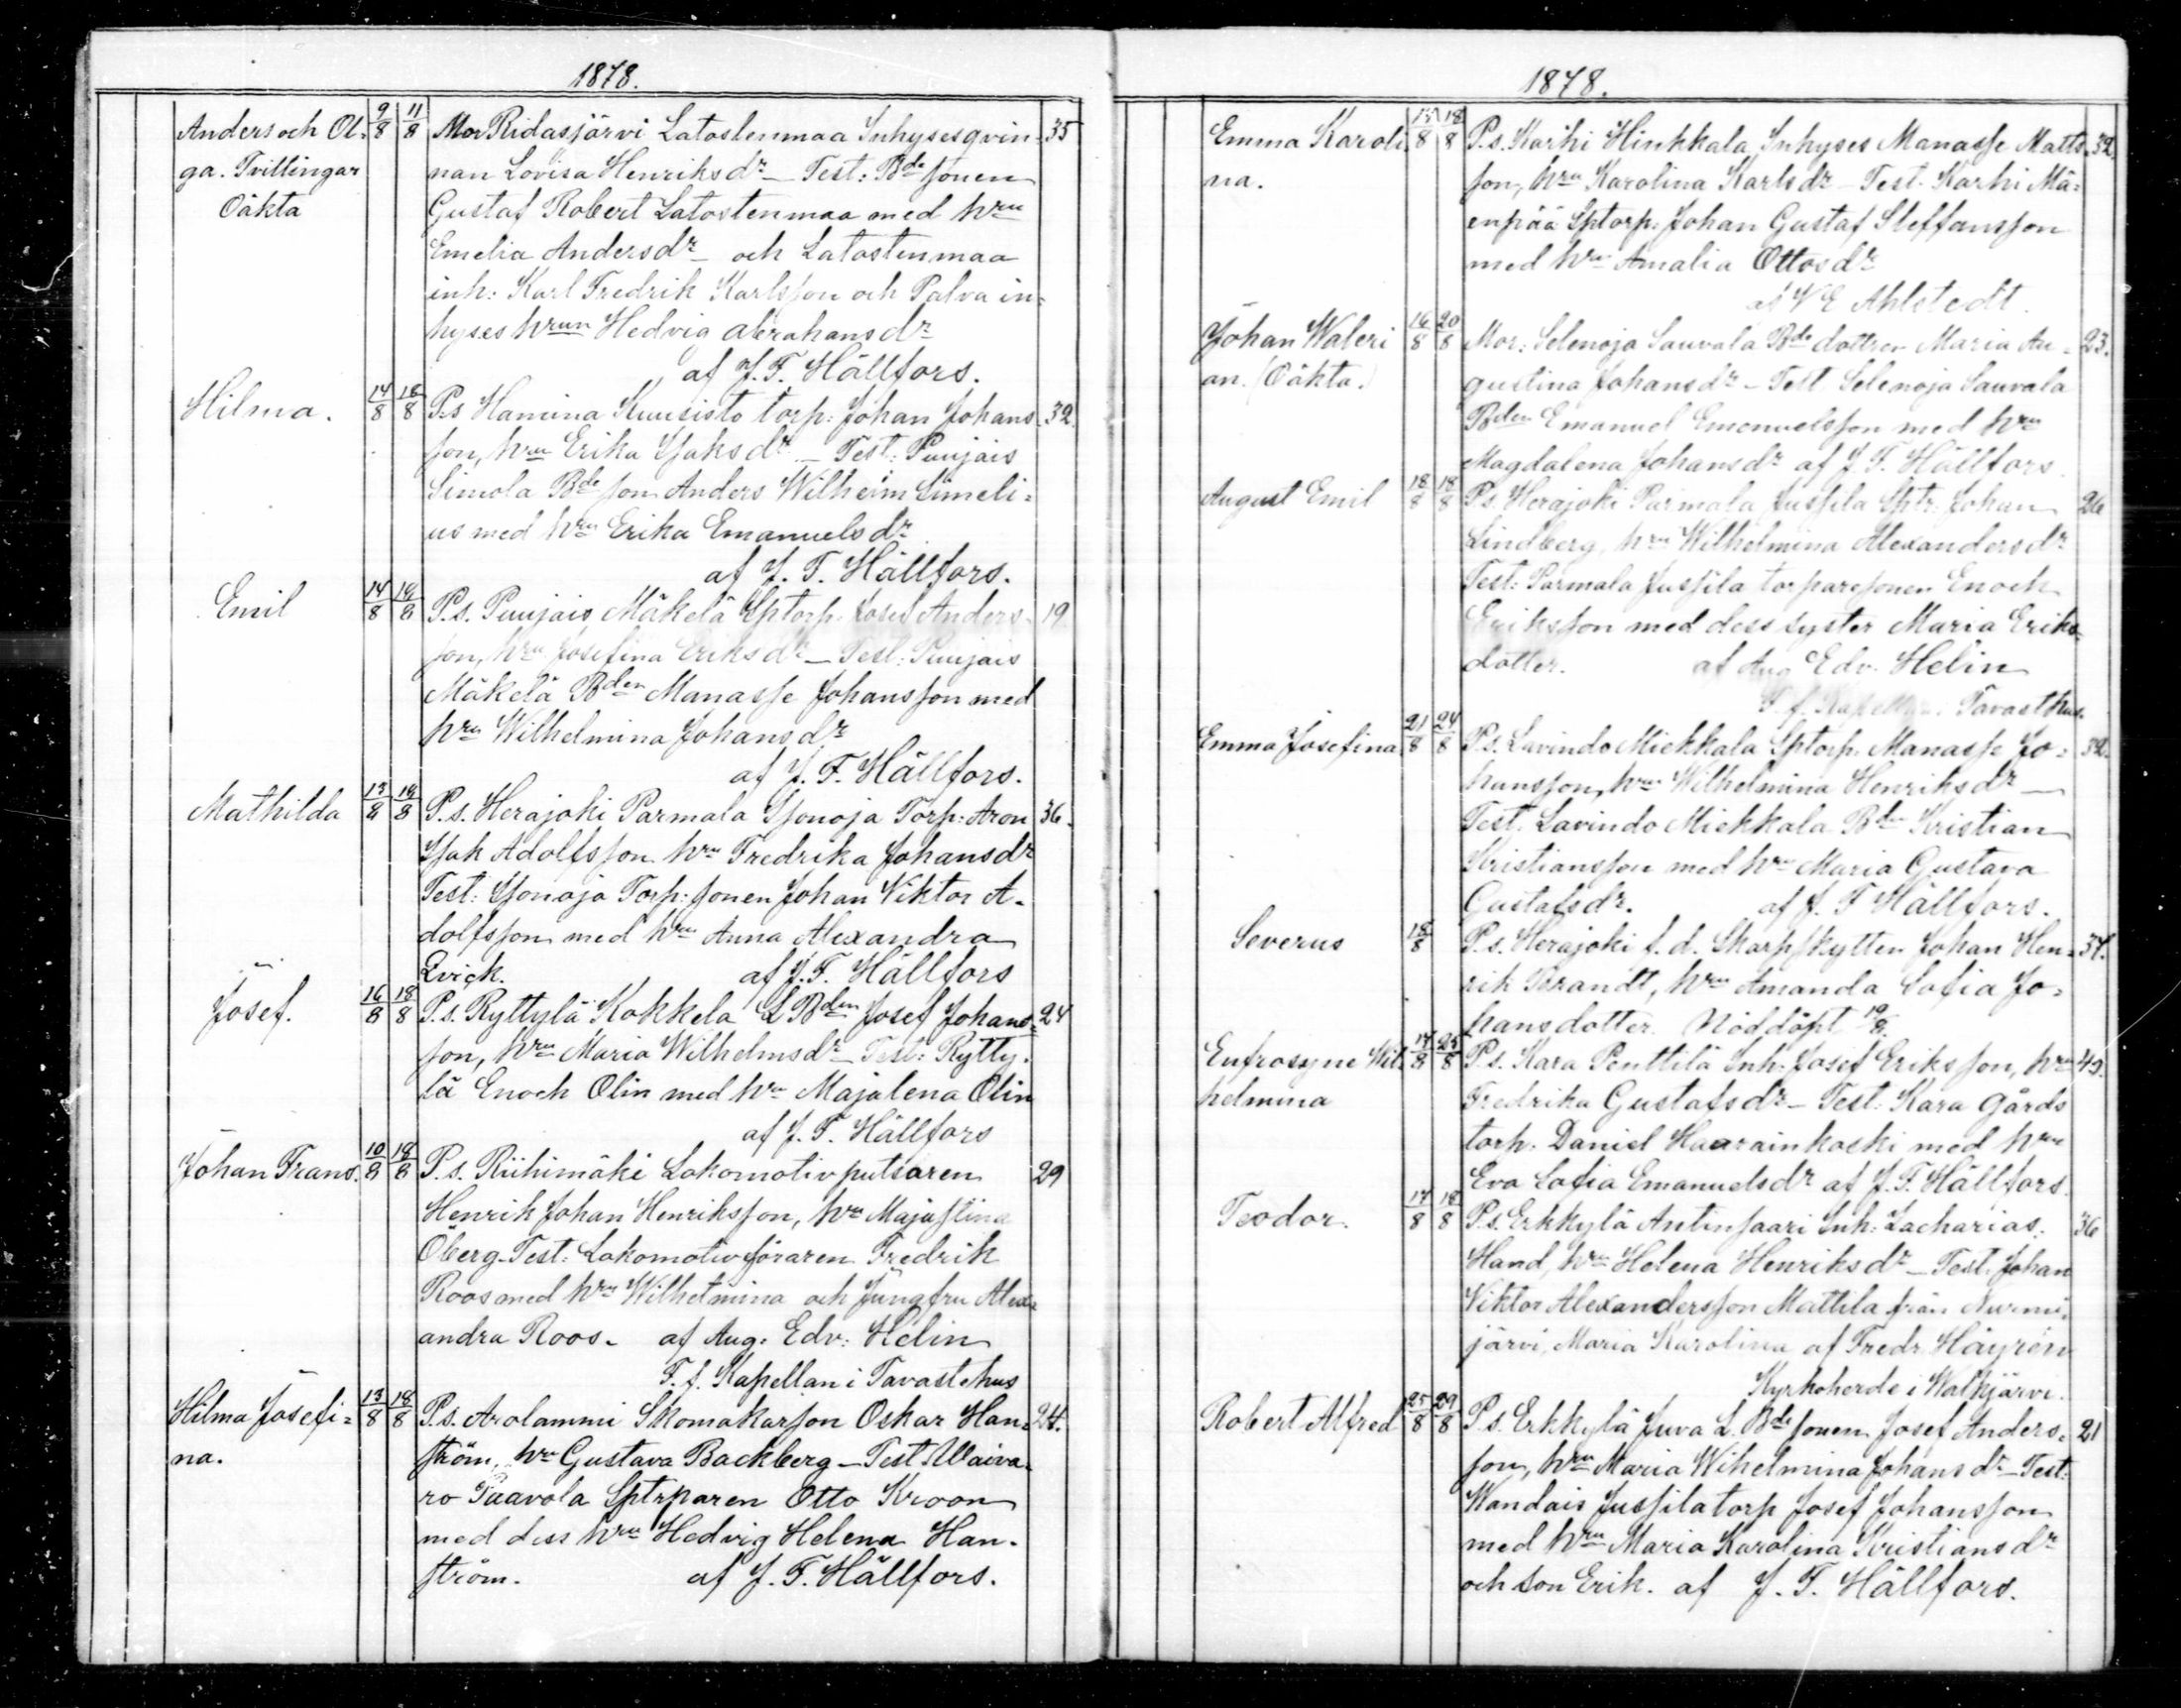 1878.
Anders och Ol- 9/8 11/8 Mor Ridasjärvi Latostenmaa Inhysesqvin- 35
ga. Tvillingar nan Lovisa Henriksdr – Test: Bdesonen
Oäkta Gustaf Robert Latostenmaa med hru
Emelia Andersdr och Latostenmaa
inh: Karl Fredrik Karlsson och Palva in-
hyses hrun Hedvig Abrahamsdr
af J. F. Hällfors.
Hilma. 14/8 18/8 P.s Hamina Kuusisto torp: Johan Johans- 32
son, hru Erika Isaksdr – Test: Puujais
Simola Bdeson Anders Wilhelm Simeli-
us med hru Erika Emanuelsdr
af J. F. Hällfors.
Emil 14/8 18/8 P.s. Puujais Mäkelä Sptorp. Josef Anders- 19
son, hru Josefina Eriksdr – Test: Puujais
Mäkelä Bden Manasse Johansson med
hru Wilhelmina Johansdr
af J. F. Hällfors.
Mathilda 13/8 18/8 P.s. Herajoki Parmala Isonoja Torp: Aron 36.
Isak Adolfsson hru Fredrika Johansdr
Test: Isonoja Torp: sonen Johan Viktor A-
dolfsson med hru Anna Alexandra
Qvick. af J. F. Hällfors
Josef. 16/8 18/8 P.s. Ryttylä Kokkela L Bden Josef Johans- 24
son, hru Maria Wilhelmsdr – Test: Rytty-
lä Enoch Olin med hru Majalena Olin
af J. F. Hällfors
Johan Frans. 10/8 18/8 P.s. Riihimäki Lokomotivputsaren 29
Henrik Johan Henriksson, hru Majastina
Öberg – Test: Lokomotivföraren Fredrik
Roos med hru Wilhelmina och Jungfru Alex-
andra Roos. af Aug: Edv: Helin
T. f. Kapellan i Tavastehus
Hilma Josefi- 13/8 18/8 P.s. Arolammi Skomakarson Oskar Han- 24.
na. ström, hru Gustava Backberg – Test Waiva-
ro Paavola Sptrparen Otto Kroon
med dess hru Hedvig Helena Han-
ström. af J. F. Hällfors.
1878.
Emma Karoli 15/8 18/8 P.s. Karhi Hinkkala Inhyses Manasse Matts- 32
na. son, hru Karolina Karlsdr – Test. Karhi Mä-
enpää Sptorp. Johan Gustaf Steffansson
med hru Amalia Ottosdr
af W E Ahlstedt.
Johan Waleri 16/8 20/8 Mor: Selenoja Sauvala Bde dottren Maria Au- 23.
an. (Oäkta.) gustina Johansdr – Test Selenoja Sauvala
Bden Emanuel Emanuelsson med hru
Magdalena Johansdr af J. F. Hällfors.
August Emil 18/8 18/8 P.s. Herajoki Parmala Jussila Sptr. Johan 26
Lindberg, hru Wilhelmina Alexandersdr
Test: Parmala Jussila torparesonen Enoch
Eriksson med dess syster Maria Eriks-
dotter. af Aug Edv. Helin
T. f. Kapellan. Tavasthus.
Emma Josefina 21/8 24/8 P.s. Lavindo Miekkala Sptorp. Manasse Jo- 32.
hansson, hru Wilhelmina Henriksdr –
Test. Lavindo Miekkala Bden Kristian
Kristiansson med hru Maria Gustava
Gustafsdr. af J. F Hällfors.
Severus 18/8 P.s. Herajoki f. d. Skarpskytten Johan Hen- 34.
rik Brandt, hru Amanda Sofia Jo-
hansdotter. Nöddöpt 19/8.
Eufrosyne Wil- 17/8 25/8 P.s. Kara Penttilä Inh. Josef Eriksson, hru 42.
helmina Fredrika Gustafsdr – Test: Kara gårds
torp. Daniel Haarainkoski med hru
Eva Sofia Emanuelsdr af J. F. Hällfors.
Teodor. 17/8 18/8 P.s. Erkkylä Antinsaari Inh: Zacharias 36
Hand, hru Helena Henriksdr – Test. Johan
Viktor Alexandersson Mattila från Nurmi-
järvi, Maria Karolina af Fredr. Häyrén
Kyrkoherde i Walkjärvi.
Robert Alfred 25/8 29/8 P.s. Erkkylä Juva L. Bdesonen Josef Anders- 21
son, hru Maria Wihelmina Johansdr – Test.
Wandais Jussila torp Josef Johansson
med hru Maria Karolina Kristiansdr
och son Erik. af J. F. Hällfors.